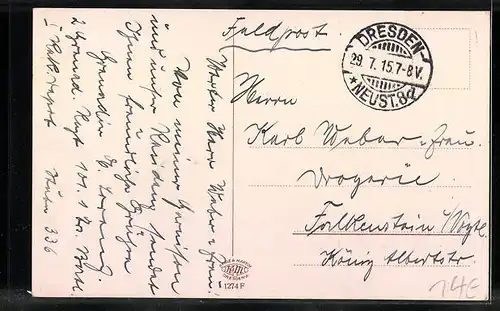 Feldpost.
DRESDEN-
29. 7. 15. 7-8 V.
* NEUST. 8d
Herrn
Karl Weber u. Frau
Drogerie
Falkenstein i/Vogtl.
König Albertstr.
Werter Herr Weber u. Frau!
Von meiner Garnison
und unser Residenz sendet
Ihnen freundliche Grüßen
Grenadier
2 Grenad. Regt 101. 1 Ers. Batl.
I Rekt. Depot Stube 336
1274 F
14E